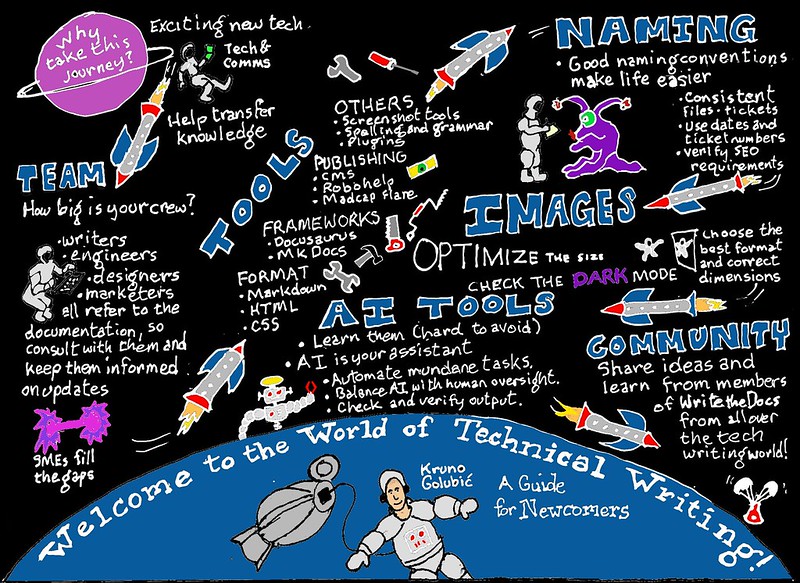 Why
take this
journey?
Exciting new tech.
Tech &
comms
Help transfer
knowledge
TEAM
How big is your crew?
• writers
• engineers
• designers
• marketers
all refer to the
documentation, so
consult with them and
keep them informed
on updates
SMEs fill
the gaps
TOOLS
OTHERS
• Screenshot tools
• Spelling and grammar
• Plugins
PUBLISHING
• CMS
• Robohelp
• Madcap flare
FRAMEWORKS
• Docusaurus
• MK Docs
FORMAT
• Markdown
• HTML
• CSS
NAMING
• Good naming conventions
make life easier
• Consistent
files • tickets
• Use dates and
ticket numbers
• verify SEO
requirements
IMAGES
OPTIMIZE THE SIZE
CHECK THE DARK MODE
Choose the
best format
and correct
dimensions
AI TOOLS
• Learn them (hard to avoid)
• AI is your assistant
• Automate mundane tasks.
• Balance AI with human oversight.
• Check and verify output.
COMMUNITY
Share ideas and
learn from members
of Write the Docs
from all over
the tech
writing world!
Welcome to the World of Technical Writing!
Kruno
Golubić
A Guide
for Newcomers